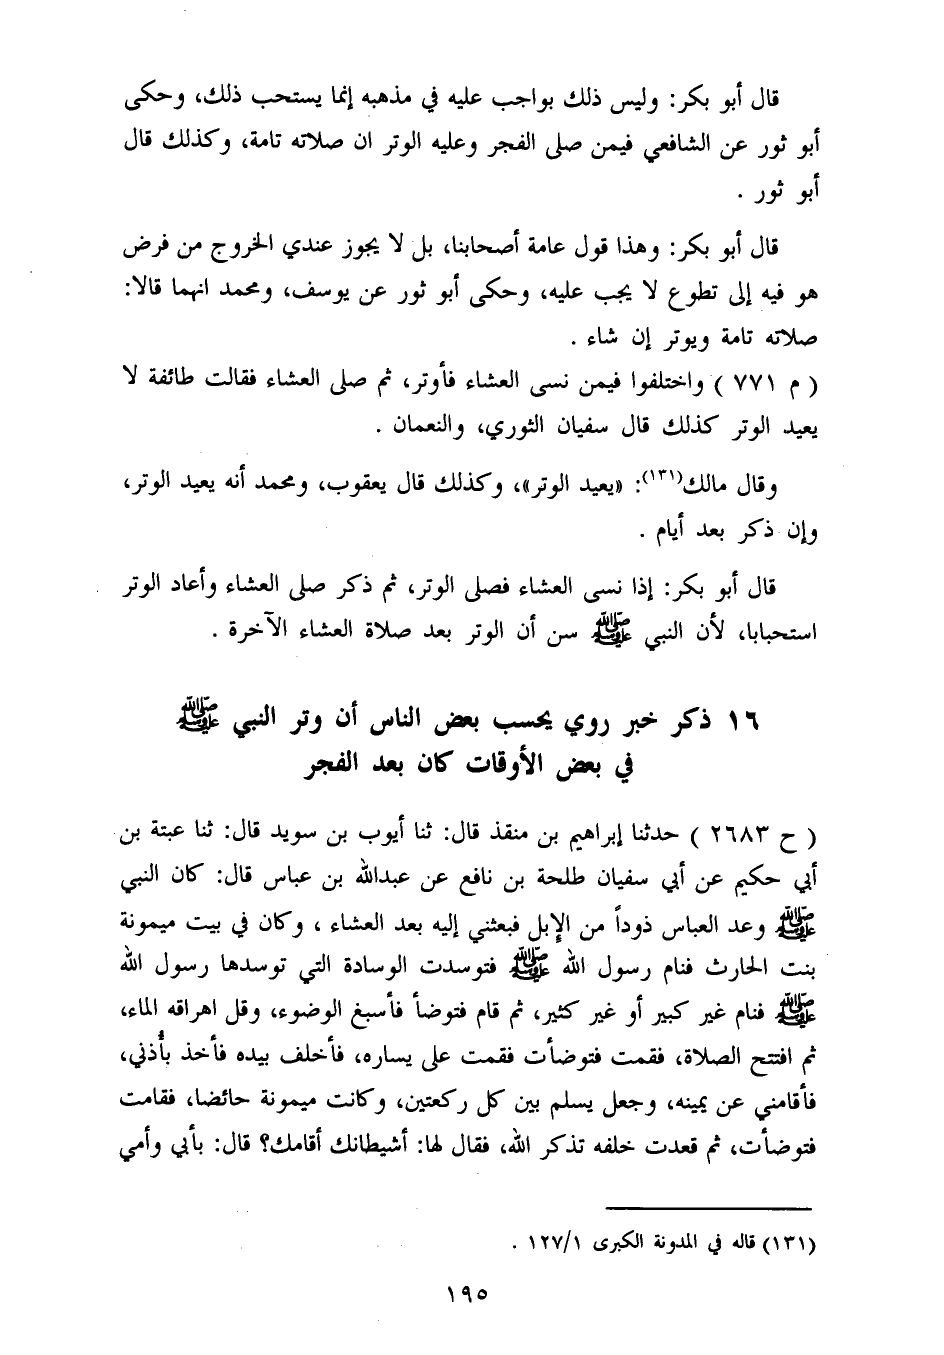 قال أبو بكر: وليس ذلك بواجب عليه في مذهبه إنما يستحب ذلك، وحكى
أبو ثور عن الشافعي فيمن صلى الفجر وعليه الوتر ان صلاته تامة، وكذلك قال
أبو ثور .
قال أبو بكر: وهذا قول عامة أصحابنا، بل لا يجوز عندي الخروج من فرض
هو فيه إلى تطوع لا يجب عليه، وحكى أبو ثور عن يوسف، ومحمد انهما قالا:
صلاته تامة ويوتر إن شاء .
( م ٧٧١ ) واختلفوا فيمن نسى العشاء فأوتر، ثم صلى العشاء فقالت طائفة لا
يعيد الوتر كذلك قال سفيان الثوري، والنعمان .
وقال مالك(١٣١): «يعيد الوتر»، وكذلك قال يعقوب، ومحمد أنه يعيد الوتر،
وإن ذكر بعد أيام .
قال أبو بكر: إذا نسى العشاء فصلى الوتر، ثم ذكر صلى العشاء وأعاد الوتر
استحبابا، لأن النبي ﷺ سن أن الوتر بعد صلاة العشاء الآخرة .
١٦ ذكر خبر روي يحسب بعض الناس أن وتر النبي ﷺ
في بعض الأوقات كان بعد الفجر
( ح ٢٦٨٣ ) حدثنا إبراهيم بن منقذ قال: ثنا أيوب بن سويد قال: ثنا عبتة بن
أبي حكيم عن أبي سفيان طلحة بن نافع عن عبدالله بن عباس قال: كان النبي
ﷺ وعد العباس ذوداً من الإبل فبعثني إليه بعد العشاء ، وكان في بيت ميمونة
بنت الحارث فنام رسول الله ﷺ فتوسدت الوسادة التي توسدها رسول الله
ﷺ فنام غير كبير أو غير كثير، ثم قام فتوضأ فأسبغ الوضوء، وقل اهراقه الماء،
ثم افتتح الصلاة، فقمت فتوضأت فقمت على يساره، فأخلف بيده فأخذ بأُذني،
فأقامني عن يمينه، وجعل يسلم بين كل ركعتين، وكانت ميمونة حائضا، فقامت
فتوضأت، ثم قعدت خلفه تذكر الله، فقال لها: أشيطانك أقامك؟ قال: بأبي وأمي
(١٣١) قاله في المدونة الكبرى ١٢٧/١ .
١٩٥